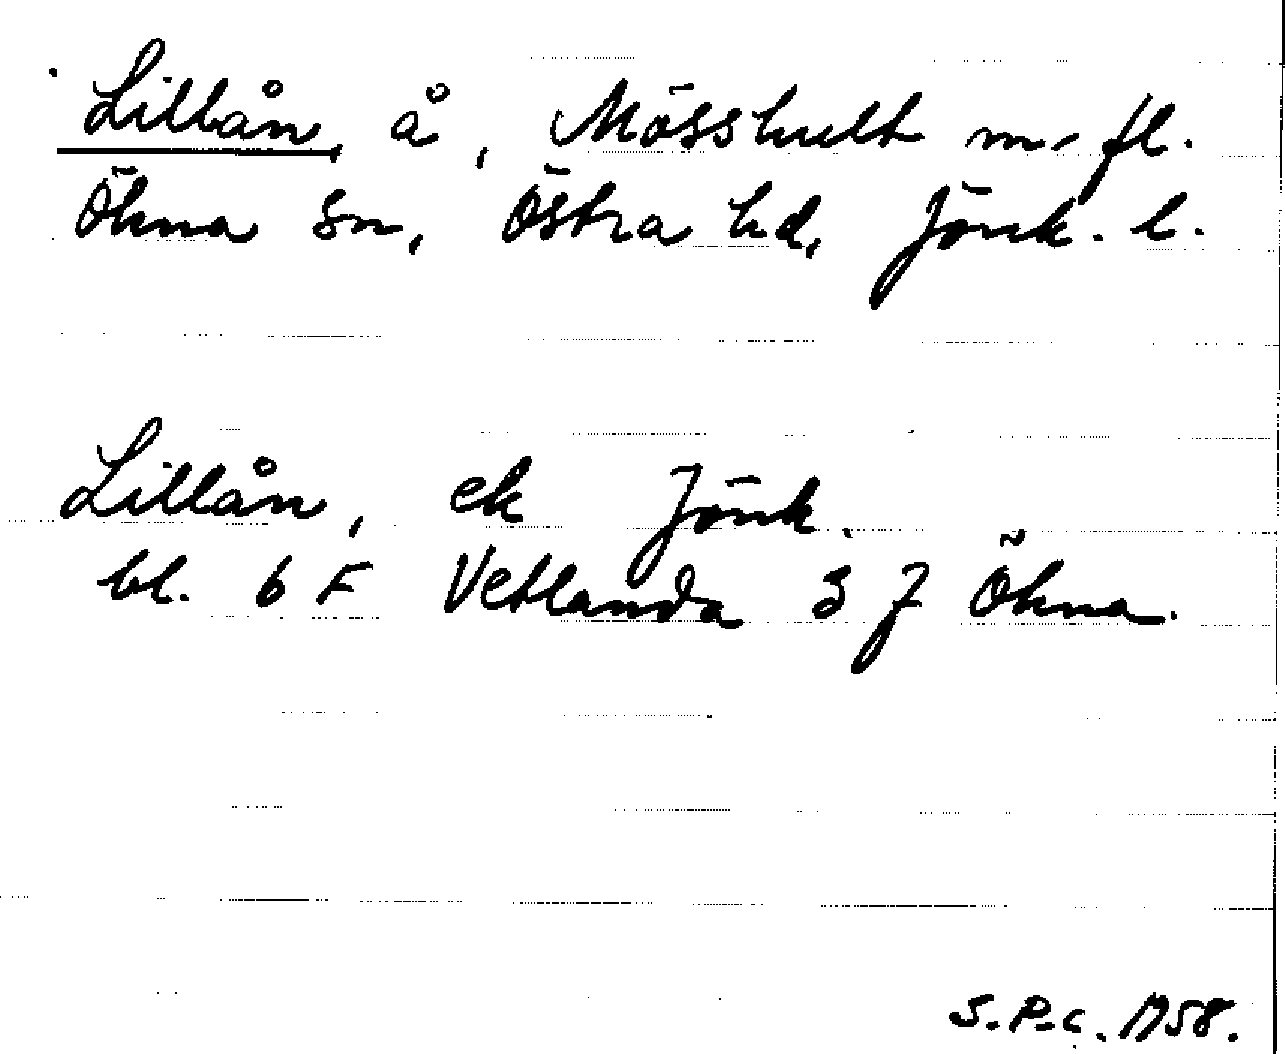 Lillån, å, Mösshult m. fl.
Ökna sn, Östra hd, Jönk. l.
Lillån, ek Jönk.
bl. 6 F Vetlanda 3 f Ökna.
S.P.C. 1958.